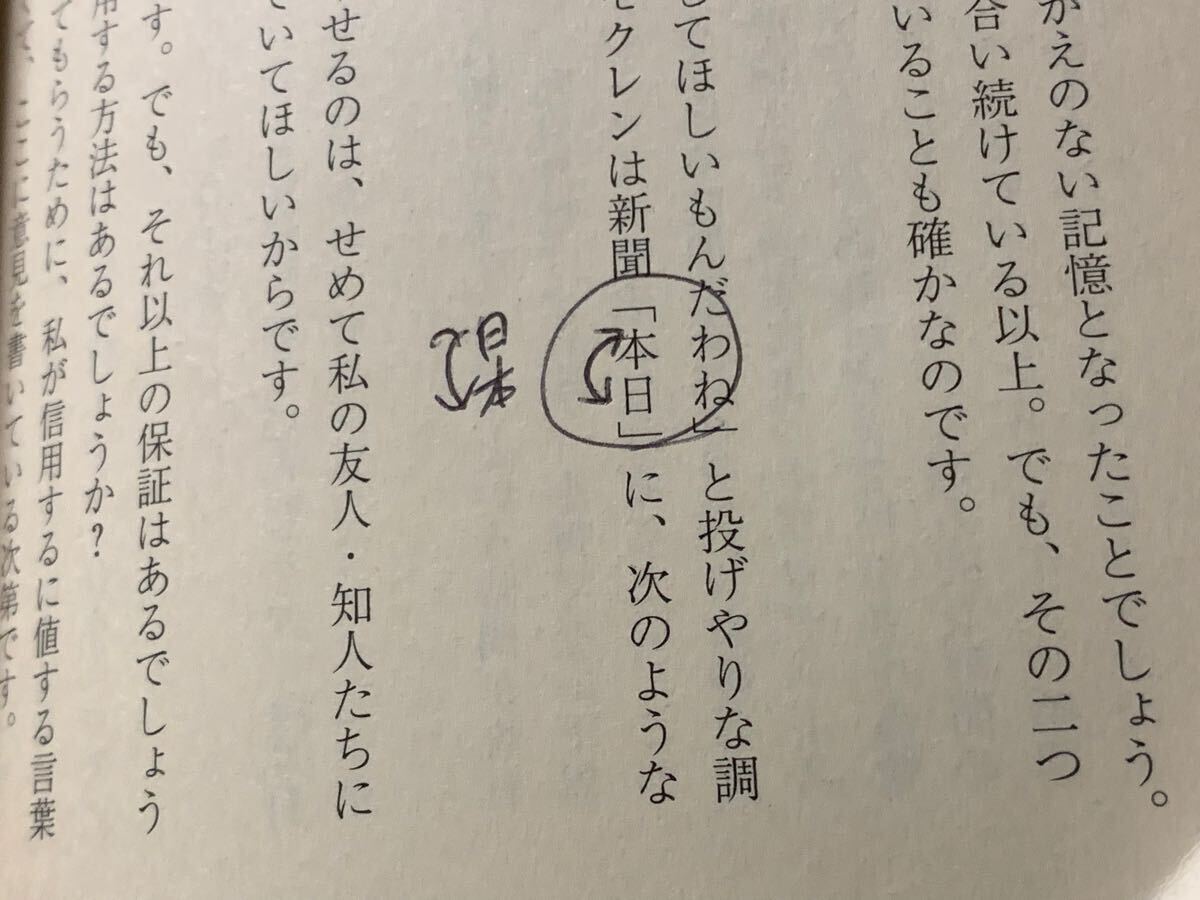 がえのない記憶となったことでしょう。
合い続けている以上。でも、その二つ
いることも確かなのです。
してほしいもんだわね」と投げやりな調
モクレンは新聞「本日」に、次のような
日本
せるのは、せめて私の友人・知人たちに
いてほしいからです。
す。でも、それ以上の保証はあるでしょう
用する方法はあるでしょうか？
てもらうために、私が信用するに値する言葉
ここに意見を書いている次第です。